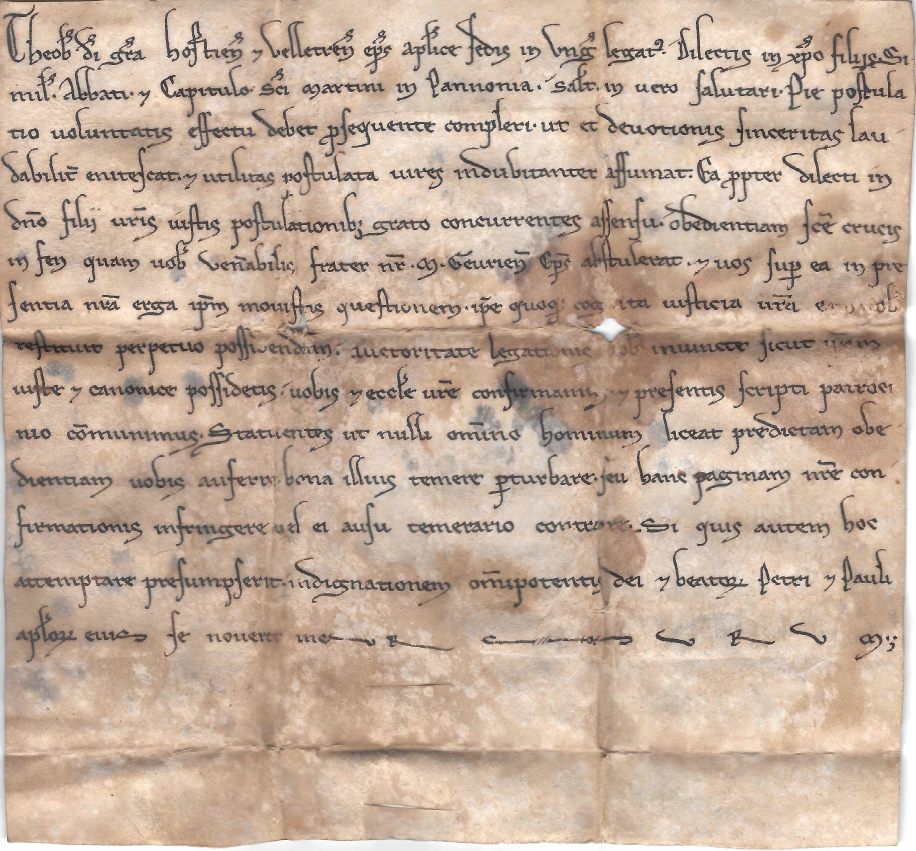 Theob᷒. di᷒ gr̃a hostien᷒ ⁊ velletren᷒ ep̃s aplice sedis in Vng᷒ legat᷒. Dilectis in xp̃o filijs. Si
mil᷒. Abbati. ⁊ Capitulo. Sc̃i Martini in Pannonia. salt̃. in vero salutari. Pie postula
tio voluntatis effectu debet ꝓsequente compleri. ut et devotionis sinceritas lau
dabilit᷒ enitescat. ⁊ utilitas postulata vires indubitanter assumat. Ea ꝓpter dilecti in
dn̄o filii vr̃is iustis postulationib; grato concurrentes assensu. obedientiam sc̃e crucis
in fen quam uob᷒ Ven̄abilis frater nr̃. M. Geurien᷒ Ep̃s abstulerat. ⁊ uos suꝑ ea in pre
sentia nr̃a erga ip̃m mouistis questionem. ip̃e quoq; iusticia ur̃a
restituit perpetuo possidendam. auctoritate legationis iniuncte sicut
iuste ⁊ canonice possidetis. uobis ⁊ eccle ur̃e ⁊ presentis scripti patroci
nio cōmunimus. Statuentes ut nulli om̄ino hominum liceat predictam obe
dientiam uobis auferre. bona illius temere ꝑturbare. seu hanc paginam nr̃e con
firmationis infringere uel ei ausu temerario contraire. Si quis autem hoc
attemptare presumpserit. indignationem om̄ipotentis dei ⁊ beatoꝝ Petri ⁊ Pauli
aploꝝ eius se nouerit inc u R s u R u M ;